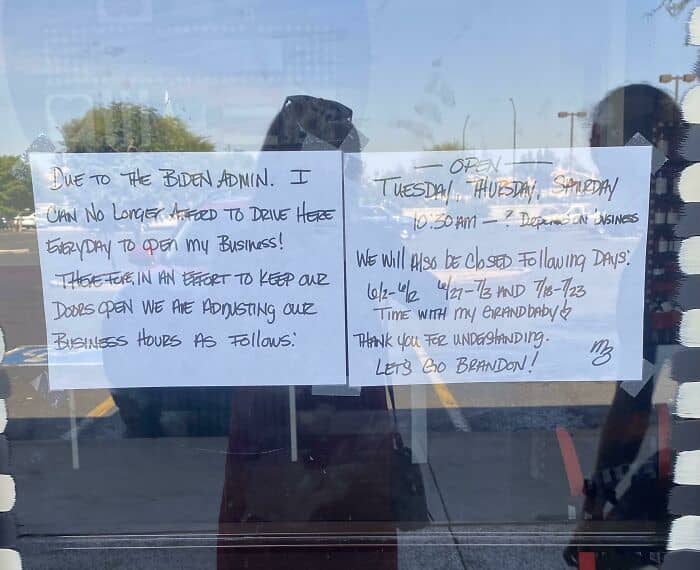 DUE TO THE BIDEN ADMIN. I
CAN NO LONGER AFFORD TO DRIVE HERE
EVERYDAY TO OPEN MY BUSINESS!
THEREFORE, IN AN EFFORT TO KEEP OUR
DOORS OPEN WE ARE ADJUSTING OUR
BUSINESS HOURS AS FOLLOWS:
— OPEN —
TUESDAY, THURSDAY, SATURDAY
10:30AM — ? DEPENDS ON BUSINESS
WE WILL ALSO BE CLOSED FOLLOWING DAYS:
6/2-6/12 6/27-7/3 AND 7/18-7/23
TIME WITH MY GRANDBABY
THANK YOU FOR UNDERSTANDING.
LET'S GO BRANDON!